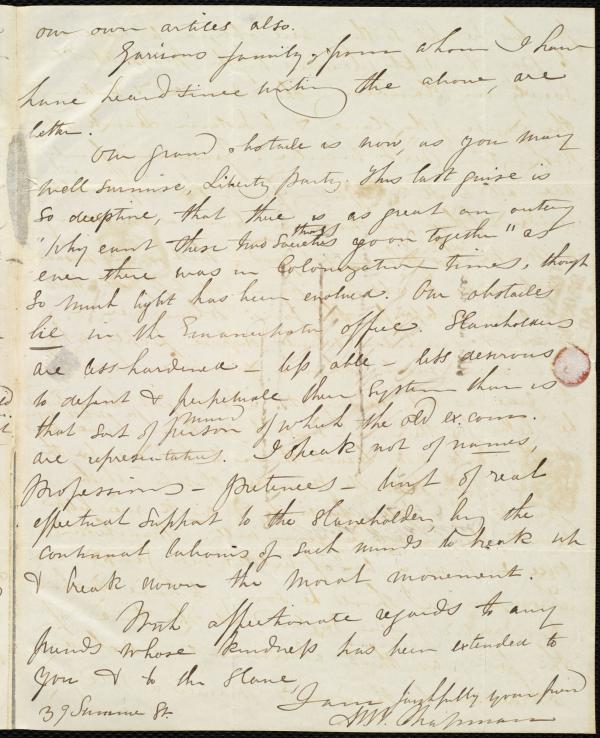 our own articles also.
Garrisons family, from whom I have
have heard since writing the above, are
better.
Our grand obstacle is now, as you may
well surmise, Liberty party. This last guise is
so deceptive, that there is as great an outcry
"Why can't these two Societies things go on together" as
ever there was in Colonization times, though
so much light has been evolved. Our obstacles
lie in the Emancipator office. Slaveholders
are less-hardened – less able – less desirous
to defend & perpetuate their System than is
that sort of person mind of which the old ex. com.
are representatives. I speak not of names,
professions – pretences – but of real
effectual support to the slaveholder, by the
continual labours of such minds to break up
& break down the moral movement.
With affectionate regards to any
friends whose kindness has been extended to
you & to the Slave,
I am faithfully your friend
39 Summer St. M. W. Chapman